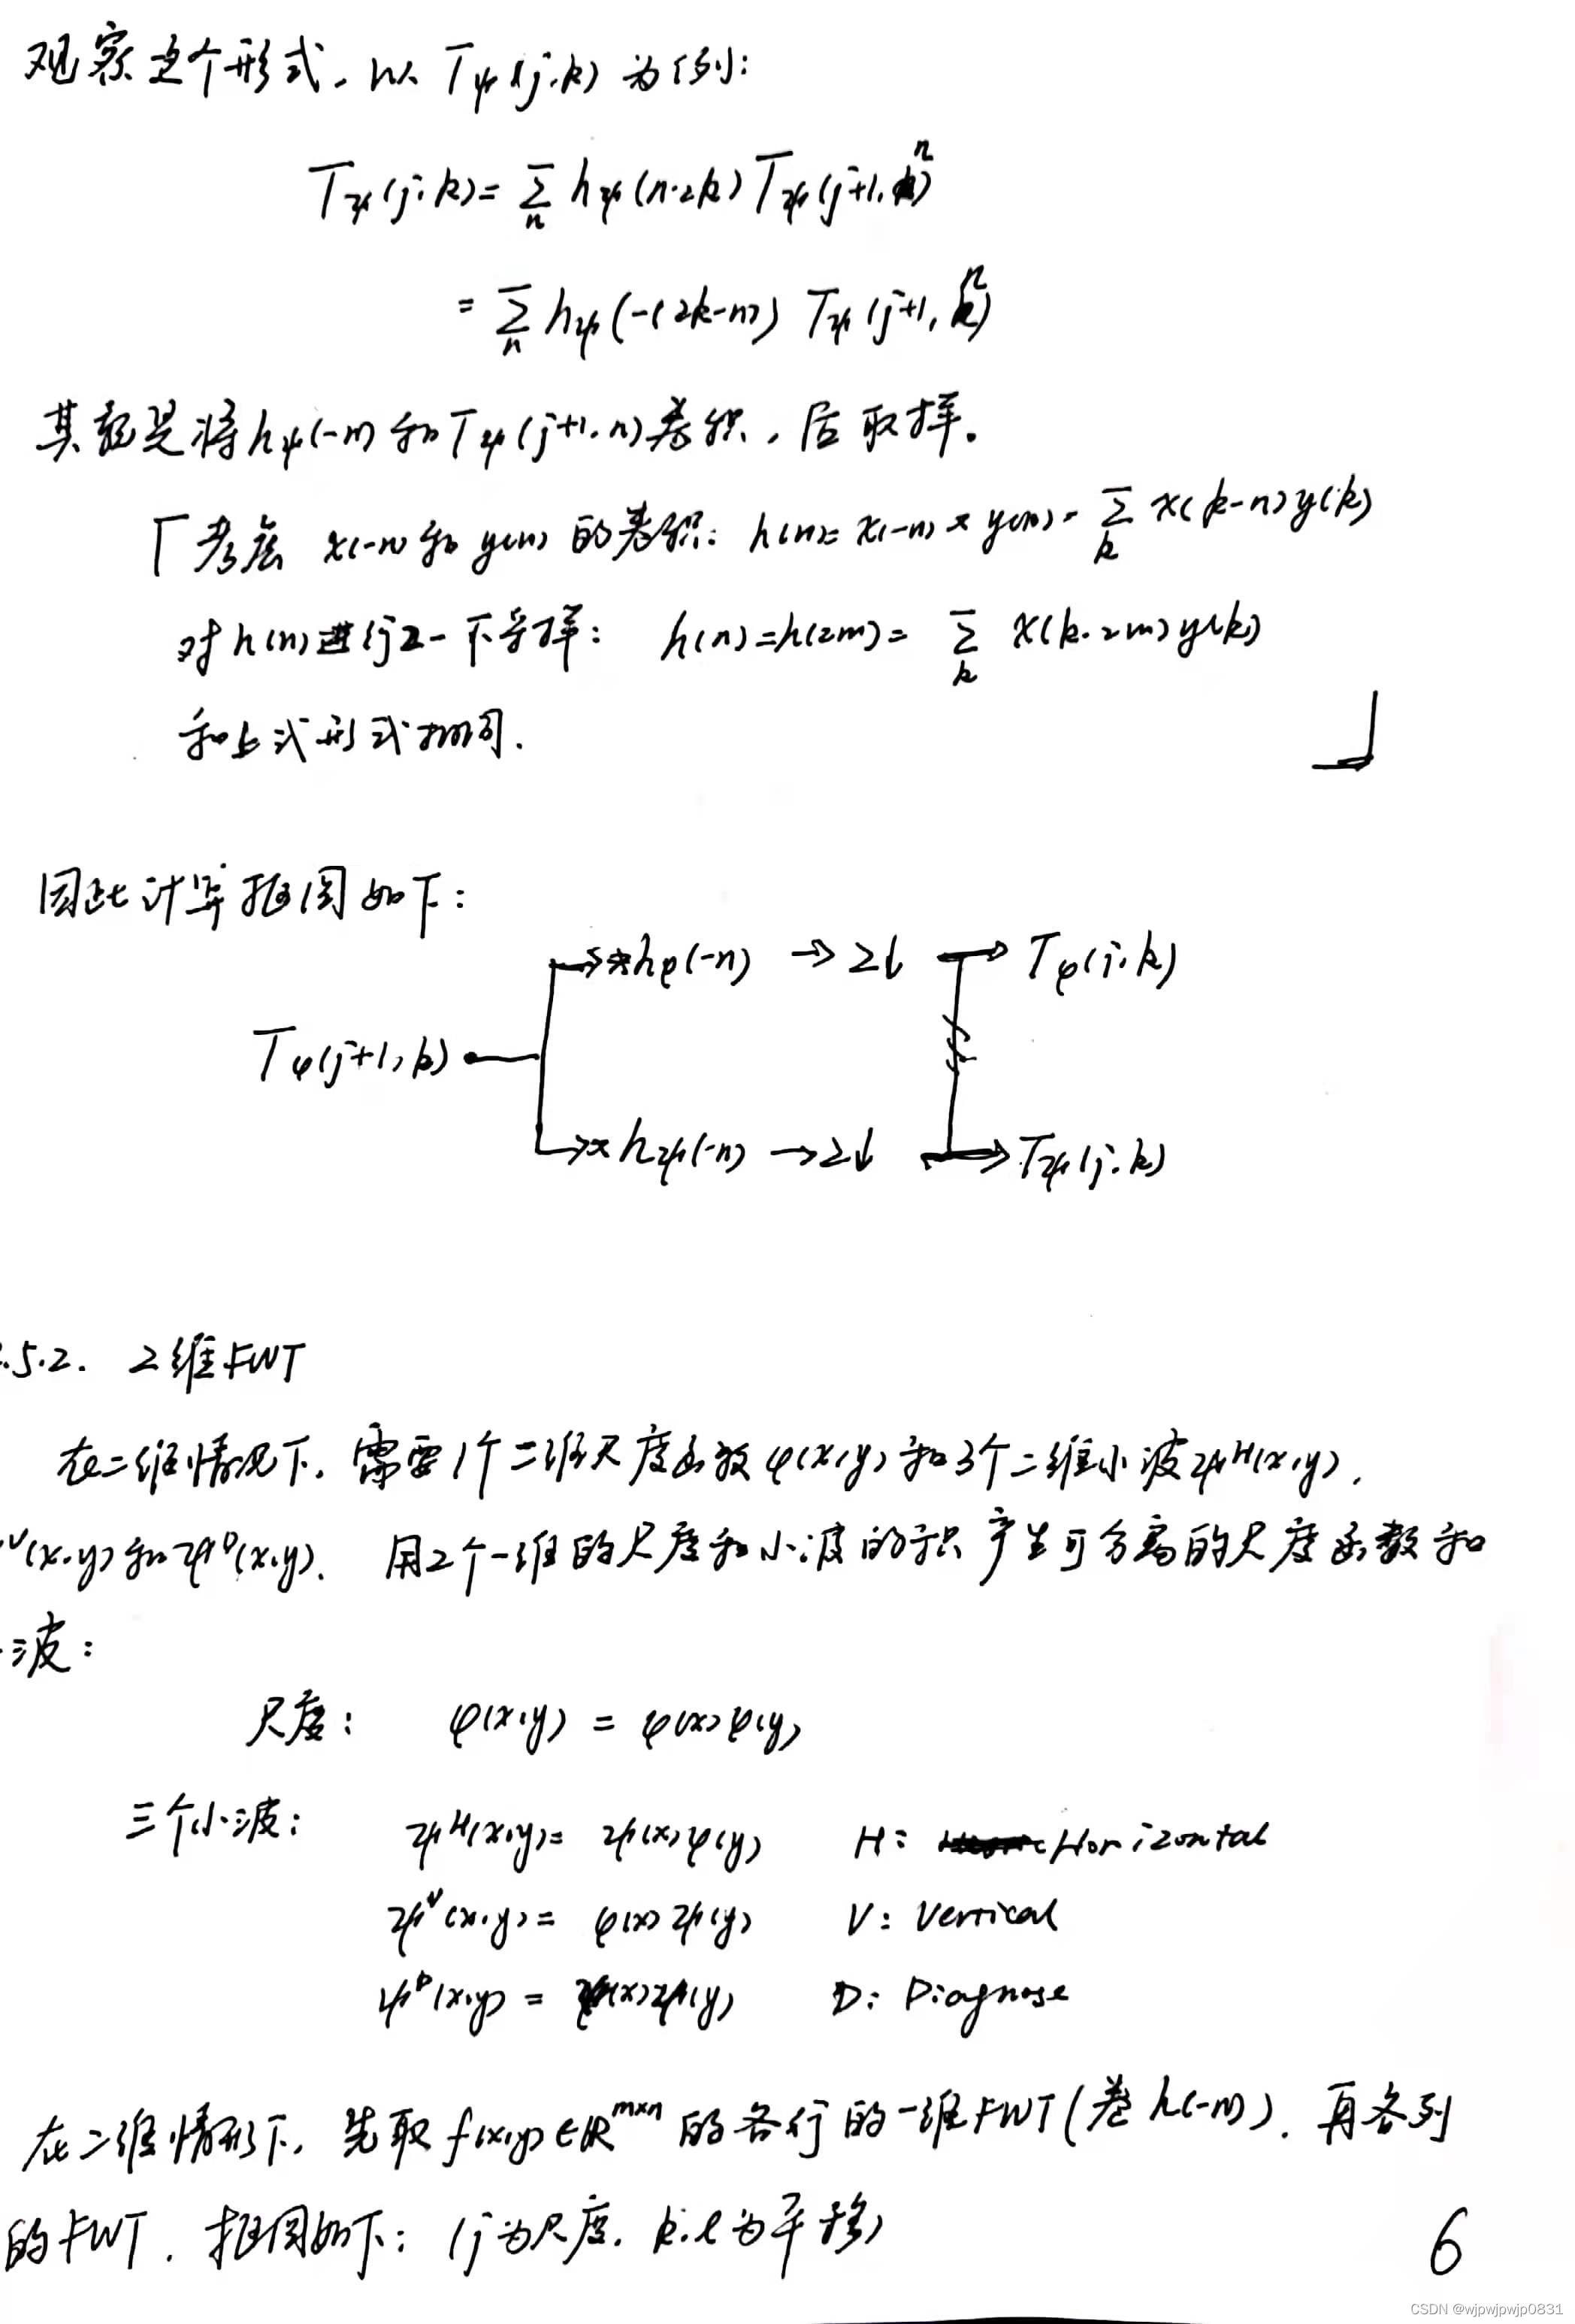 观察这个形式，以 Tψ(j,k) 为例：
Tψ(j,k) = Σ_n hψ(n-2k) Tψ(j+1,n)
= Σ_n hψ(-(2k-n)) Tψ(j+1,n)
其就是将 hψ(-n) 和 Tψ(j+1,n) 卷积，后取样。
「考虑 x(-n) 和 y(n) 的卷积： h(n) = x(-n) * y(n) = Σ_k x(k-n)y(k)
对 h(n) 进行2-下采样： h(n)=h(2m)= Σ_k x(k-2m)y(k)
和上式形式相同. 」
因此计算框图如下：
→ *hφ(-n) → 2↓ → Tφ(j,k)
Tφ(j+1,k)
→ *hψ(-n) → 2↓ → Tψ(j,k)
.5.2. 2维FWT
在二维情况下，需要1个二维尺度函数 φ(x,y) 和3个二维小波 ψ^H(x,y),
^V(x,y) 和 ψ^D(x,y). 用2个一维的尺度和小波的积产生可分离的尺度函数和
波：
尺度： φ(x,y) = φ(x)φ(y)
三个小波： ψ^H(x,y) = ψ(x)φ(y) H: Horizontal
ψ^V(x,y) = φ(x)ψ(y) V: Vertical
ψ^D(x,y) = ψ(x)ψ(y) D: Diagnose
在二维情形下，先取 f(x,y)∈R^{m×n} 的各行的一维FWT(卷 h(-n)). 再各列
的FWT. 框图如下：(j为尺度. k.l为平移)
6
CSDN @wjpwjpwjp0831